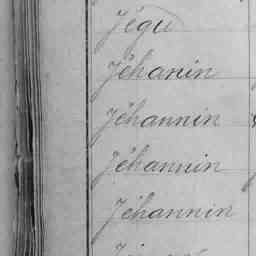 Jégu
Jéhanin
Jéhannin
Jéhannin
Jéhannin